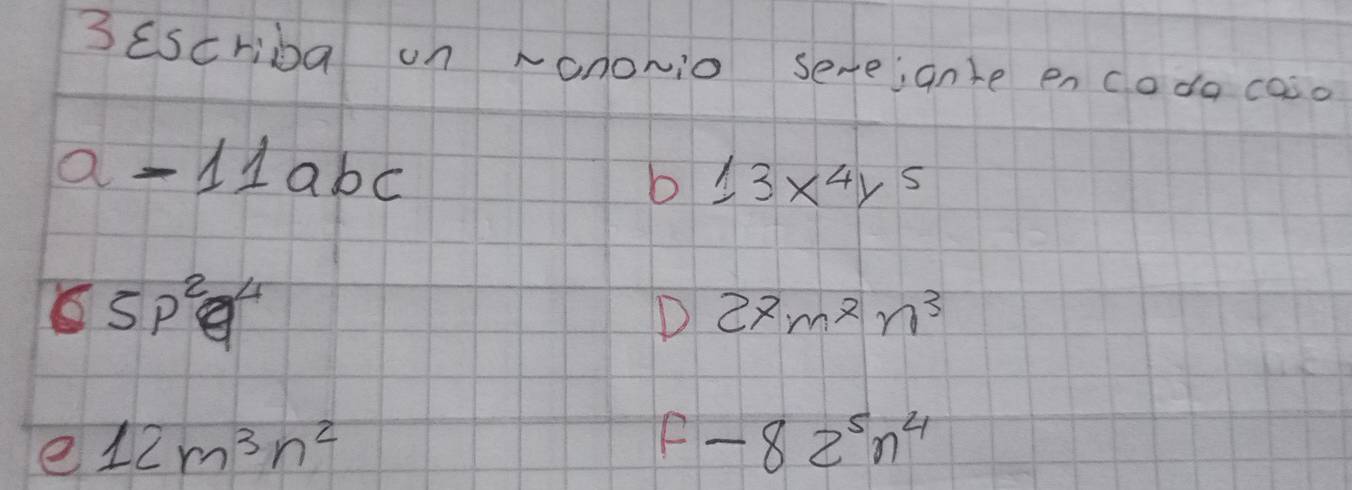 3 Escriba un monomio semejante en cada caso
a -11abc b 13x⁴y⁵
c 5p²q⁴ D 27m⁷n³
e 12m³n² F -8z⁵n⁴